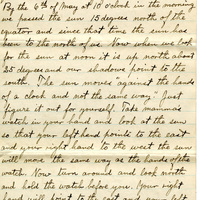 By the 6th of May at 10 o'clock in the morning
we passed the sun 15 degrees north of the
equator and since that time the sun has
been to the north of us. Now when we look
for the sun at noon it is up north about
25 degrees and our shadows point to the
south. The sun moves "against the hands
of a clock and not the same way." Just
figure it out for yourself. Take mamma's
watch in your hand and look at the sun
so that your left hand points to the east
and your right hand to the west the sun
will move the same way as the hands of the
watch. Now turn around and look north
and hold the watch before you. Your right
hand will point to the east and your left